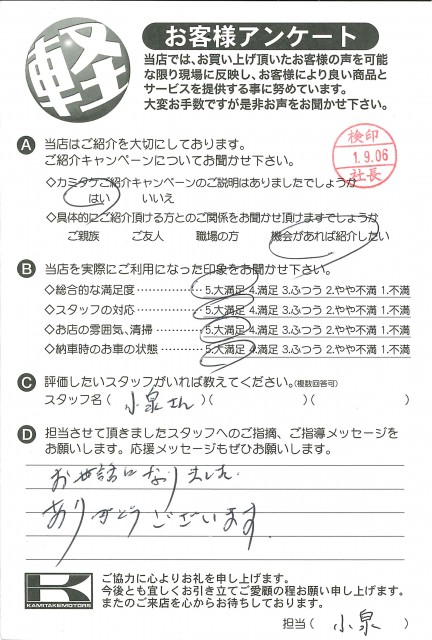 軽
お客様アンケート
当店では、お買い上げ頂いたお客様の声を可能
な限り現場に反映し、お客様により良い商品と
サービスを提供する事に努めています。
大変お手数ですが是非お声をお聞かせ下さい。
A 当店はご紹介を大切にしております。
ご紹介キャンペーンについてお聞かせ下さい。
検印
1.9.06
社長
◇カミタケご紹介キャンペーンのご説明はありましたでしょうか
はい いいえ
◇具体的にご紹介頂ける方とのご関係をお聞かせ頂けますでしょうか
ご親族 ご友人 職場の方 機会があれば紹介したい
B 当店を実際にご利用になった印象をお聞かせ下さい。
◇総合的な満足度 5.大満足 4.満足 3.ふつう 2.やや不満 1.不満
◇スタッフの対応 5.大満足 4.満足 3.ふつう 2.やや不満 1.不満
◇お店の雰囲気、清掃 5.大満足 4.満足 3.ふつう 2.やや不満 1.不満
◇納車時のお車の状態 5.大満足 4.満足 3.ふつう 2.やや不満 1.不満
C 評価したいスタッフがいれば教えてください。(複数回答可)
スタッフ名 ( 小泉さん )( )( )
D 担当させて頂きましたスタッフへのご指摘、ご指導メッセージを
お願いします。応援メッセージもぜひお願いします。
お世話になりました。
ありがとうございます。
K
KAMITAKEMOTORS
ご協力に心よりお礼を申し上げます。
今後とも宜しくお引き立てご愛顧の程お願い申し上げます。
またのご来店を心からお待ちしております。
担当 ( 小泉 )